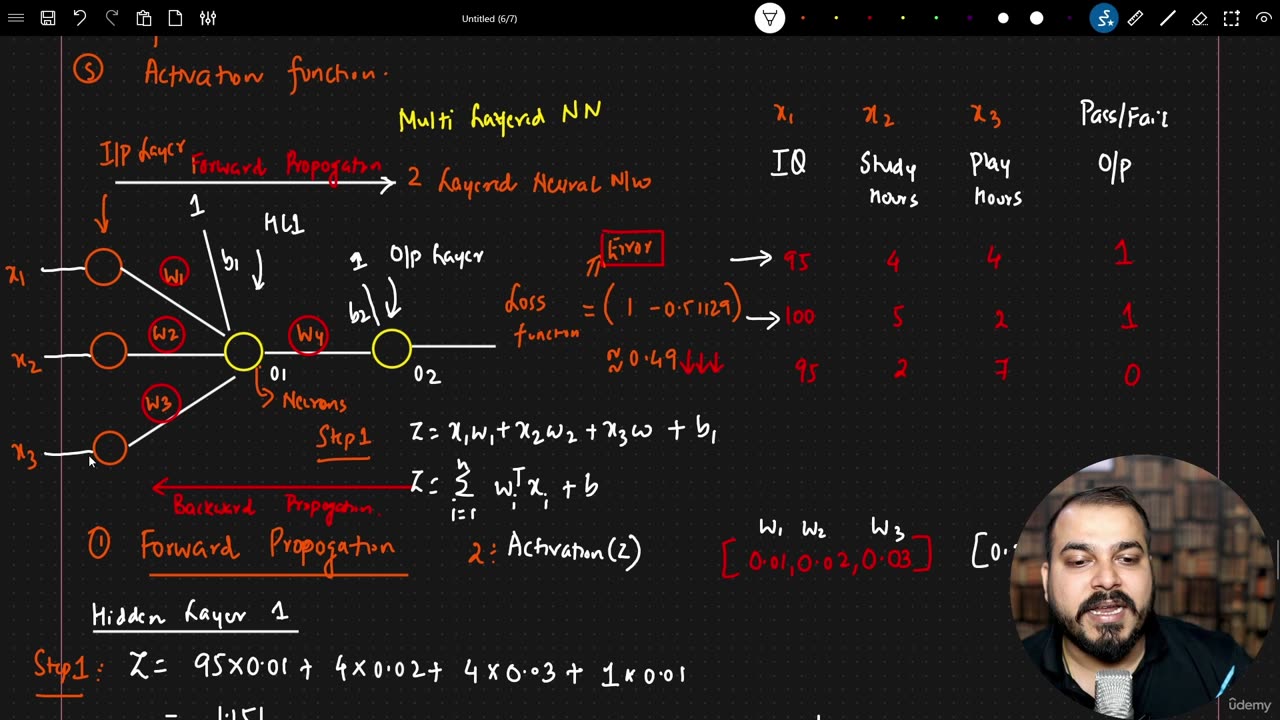 Untitled (6/7)
⑤ Activation function.
Multi Layered NN
I/p Layer
Forward Propogation
2 Layered Neural N/w
1
HL1
b1
1
O/p Layer
b2
x1
W1
x2
W2
W4
O1
O2
x3
W3
Neurons
Error
Loss function = (1 - 0.51129)
≈ 0.49 ↓↓↓
x1 x2 x3 Pass/Fail
IQ Study hours Play hours O/p
95 4 4 1
100 5 2 1
95 2 7 0
Step1
Z = x1w1 + x2w2 + x3w + b1
Z = Σ i=1 n wiT xi + b
Backward Propogation.
① Forward Propogation
2: Activation(Z)
W1 W2 W3
[0.01, 0.02, 0.03]
Hidden Layer 1
Step1: Z = 95×0.01 + 4×0.02 + 4×0.03 + 1×0.01
= 1.151
ûdemy